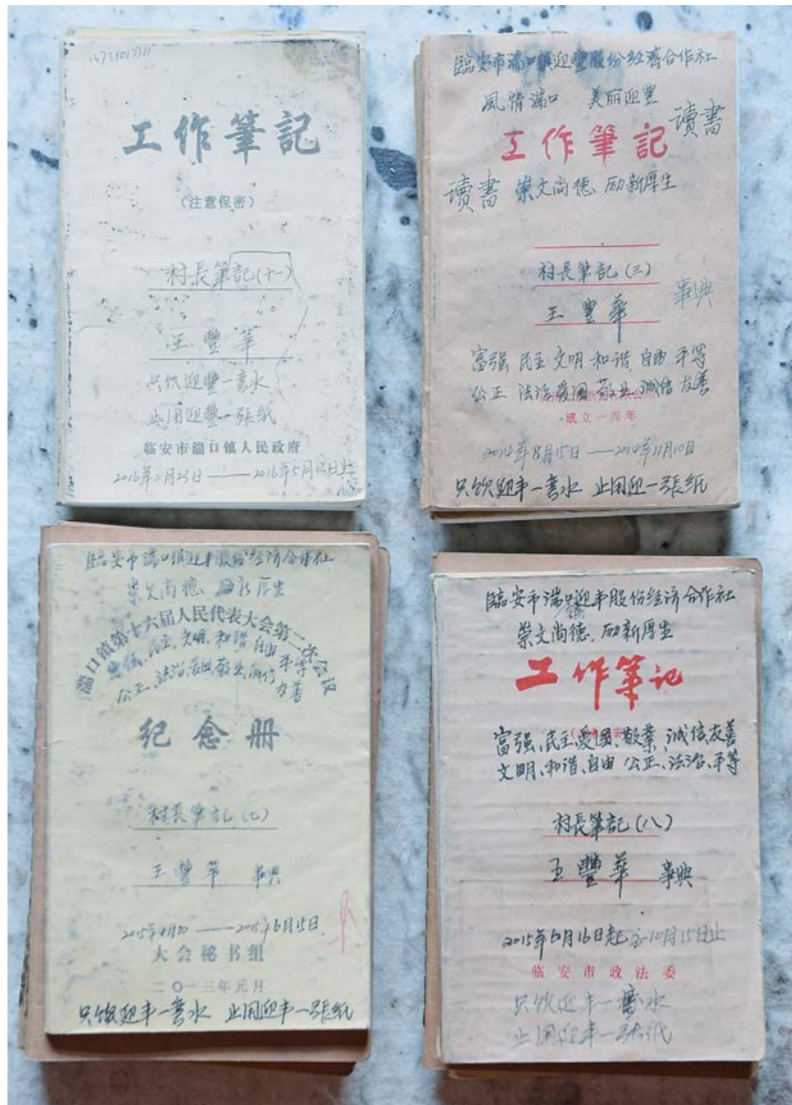 工作筆記
(注意保密)
村長筆記(十一)
王豐華
只饮迎豐一壼水
止用迎豐一张紙
临安市湍口镇人民政府
2016年2月23日——2016年5月12日止
臨安市湍口镇迎豐股份经濟合作社
風情湍口 美丽迎豐
讀書
工作筆記
讀書 崇文尚德 励新厚生
村長筆記(三)
事典
王豐華
富强 民主 文明 和谐 自由 平等
公正 法治 爱国 敬业 诚信 友善
成立一周年
2014年8月15日——2014年11月10日
只饮迎丰一壼水 止用迎一張紙
臨安市湍口镇迎丰股份经济合作社
崇文尚德 励新厚生
湍口镇第十六届人民代表大会第二次会议
民主、文明、和谐 自由 平等
公正、法治、爱国、敬业、诚信 友善
纪念册
村長筆记(七)
王豐華 事典
——2015年6月15日
大会秘书组
二〇一三年元月
只饮迎丰一壼水 止用迎丰一張紙
臨安市湍口镇迎丰股份经济合作社
崇文尚德、励新厚生
工作笔记
富强、民主、爱國、敬業、诚信、友善
文明、和谐、自由 公正、法治、平等
村長筆记(八)
王豐華 事典
2015年6月16日起至10月15日止
临安市政法委
只饮迎丰一壼水
止用迎丰一张纸